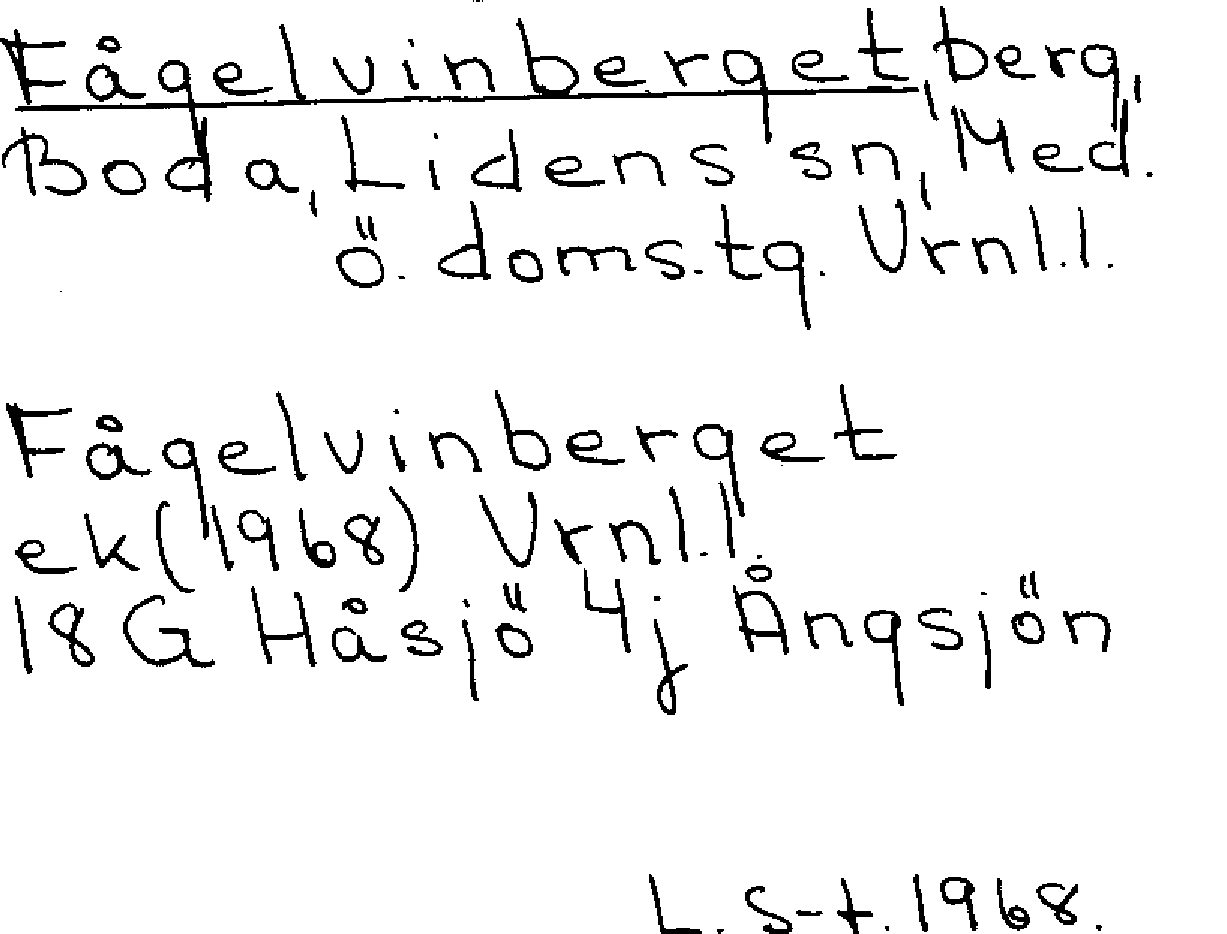 Fågelvinberget, berg,
Boda, Lidens sn, Med.
ö. doms.tg. Vrnl.l.
Fågelvinberget
ek (1968) Vrnl.l.
18G Håsjö 4j Ångsjön
L. S-t. 1968.